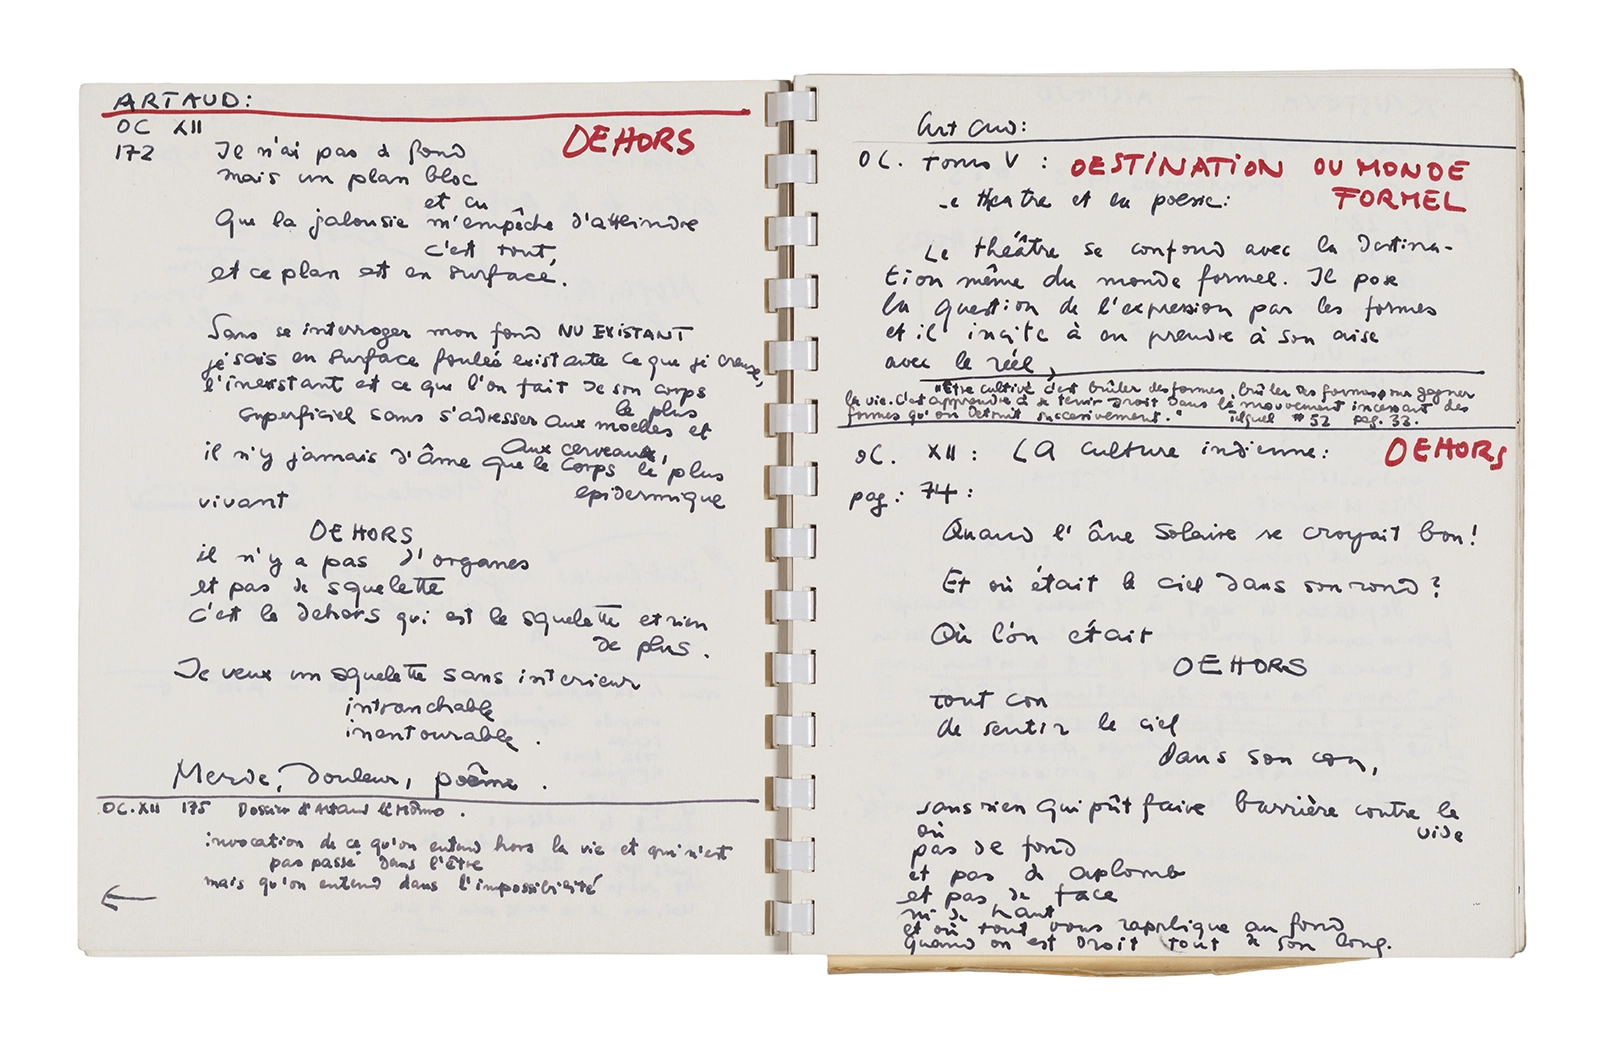 ARTAUD:
OC XII
DEHORS
172 Je n'ai pas de fond
mais un plan bloc
et cu
Que la jalousie m'empêche d'atteindre
c'est tout,
et ce plan est en surface.
Sans se interroger mon fond NU EXISTANT
je sais en surface foulée existante ce que je creuse,
l'inexistant est ce que l'on fait de son corps
le plus
superficiel sans s'adresser aux moelles et
aux cerveaux,
il n'y jamais d'âme que le corps le plus
vivant epidermique
DEHORS
il n'y a pas d'organes
et pas de squelette
c'est le dehors qui est le squelette et rien
de plus.
Je veux un squelette sans interieur
intranchable
inentourable.
Merde, Douleur, poême.
OC.XII 175 Dossier d'Artaud le Mômo.
invocation de ce qu'on entend hors la vie et qui n'est
pas passé dans l'être
mais qu'on entend dans l'impossibilité
←
Artaud:
OC. Tome V : DESTINATION DU MONDE
FORMEL
Le theatre et la poesie:
Le théâtre se confond avec la destina-
tion même du monde formel. Il pose
la question de l'expression par les formes
et il incite à en prendre à son aise
avec le réel,
"Etre cultivé c'est brûler des formes, brûler des formes pour gagner
la vie. C'est apprendre à se tenir droit dans le mouvement incessant des
formes qu'on detruit successivement." Telquel #52 pag. 32.
OC. XII: LA culture indienne: DEHORS
pag: 74:
Quand l'âne Solaire se croyait bon!
Et où était le ciel dans son rond?
Où l'on était
DEHORS
tout con
de sentir le ciel
dans son con,
sans rien qui pût faire barrière contre le
vide
où
pas de fond
et pas de aplomb
et pas de face
ni de haut
et où tout vous rapplique au fond
quand on est droit tout de son long.